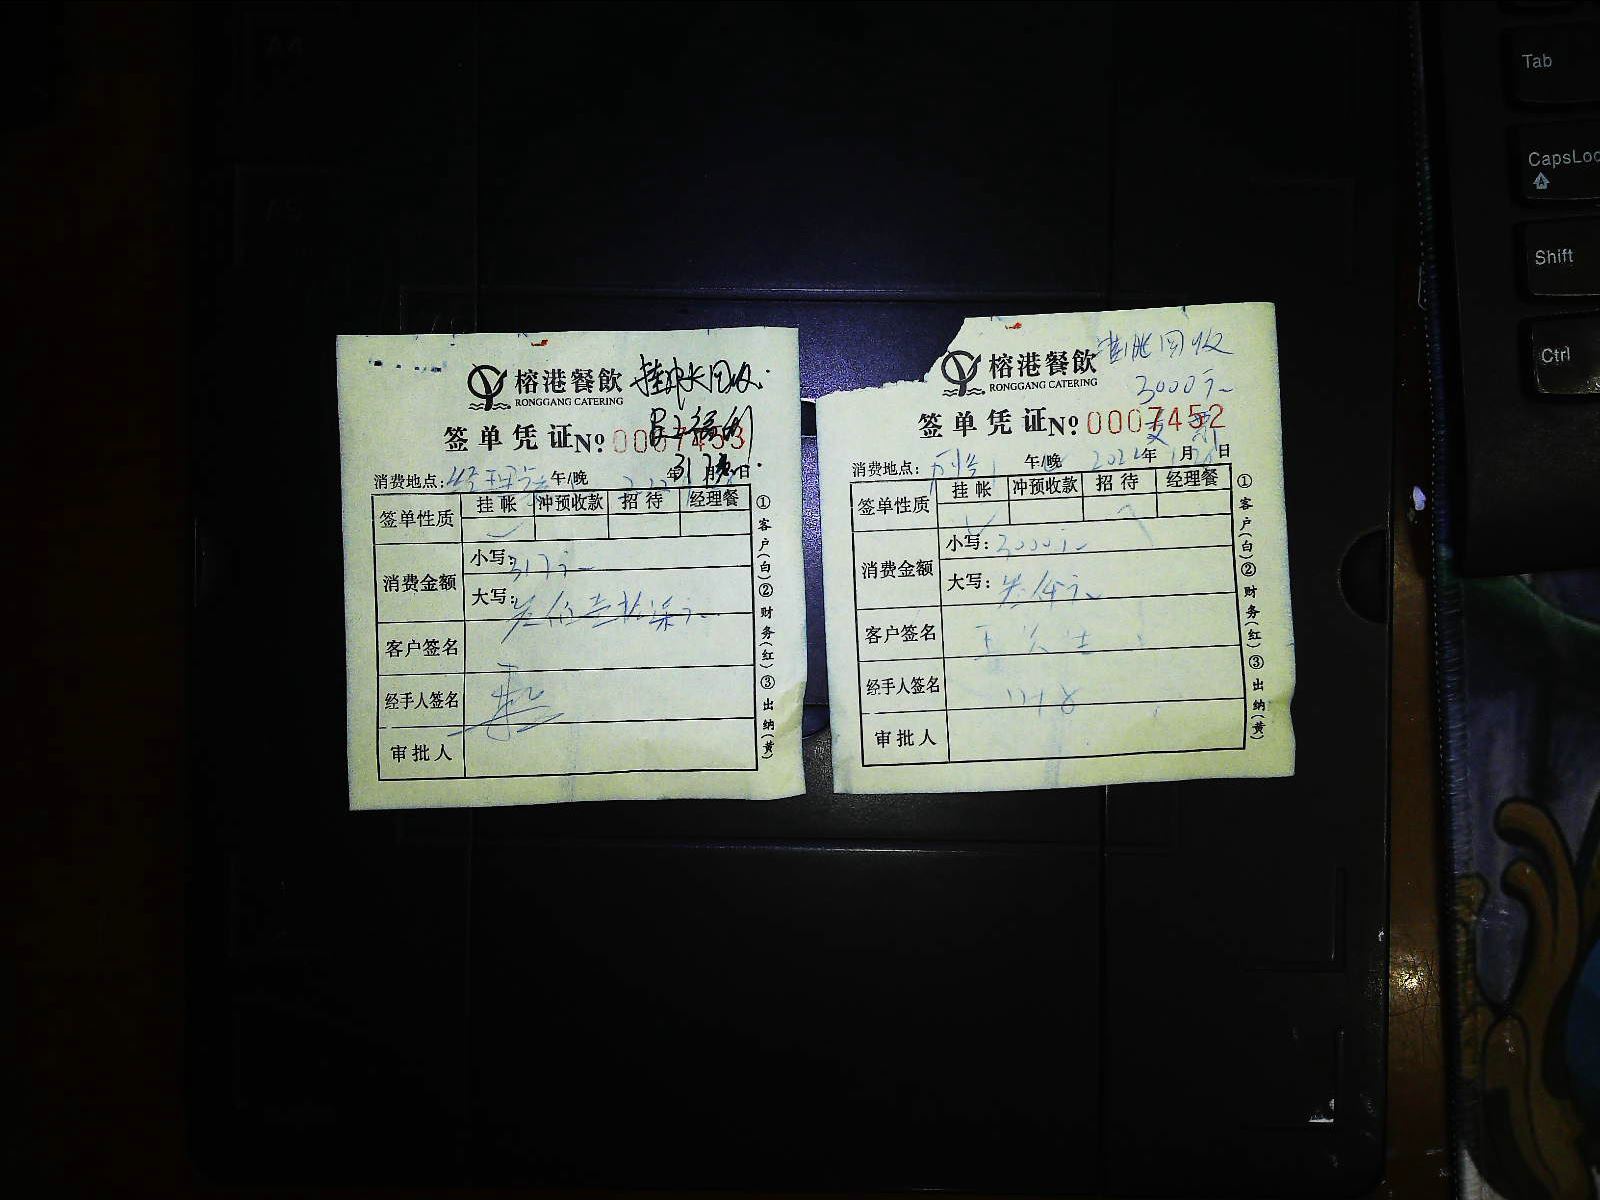 榕港餐飲
RONGGANG CATERING
挂帐回收
签单凭证 No 0007453
317
消费地点: 午/晚 年 月 日
签单性质 挂帐 冲预收款 招待 经理餐
消费金额 小写: 317元
大写: 叁佰壹拾柒元
客户签名
经手人签名
审批人
①客户(白)②财务(红)③出纳(黄)
榕港餐飲
RONGGANG CATERING
挂账回收
3000元
签单凭证 No 0007452
消费地点: 午/晚 年 月 日
签单性质 挂帐 冲预收款 招待 经理餐
消费金额 小写: 3000元
大写: 叁仟元
客户签名
经手人签名
审批人
①客户(白)②财务(红)③出纳(黄)
Tab
CapsLoc
Shift
Ctrl